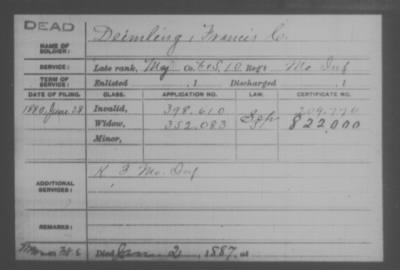 DEAD
NAME OF SOLDIER: Deimling, Francis C.
SERVICE: Late rank, Maj Co. F&S, 10 Reg't Mo Inf
TERM OF SERVICE: Enlisted , 1 Discharged , 1
DATE OF FILING. CLASS. APPLICATION NO. LAW. CERTIFICATE NO.
1880, June 28 Invalid, 398.610
Widow, 352,083 822,000
Minor,
ADDITIONAL SERVICES: K 3 Mo. Inf
REMARKS:
Died 2, 1887, at